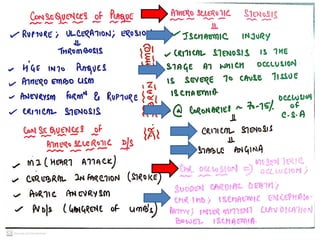 CONSEQUENCES OF PLAQUE
✓ RUPTURE, ULCERATION, EROSION
⇓
THROMBOSIS
✓ H'GE INTO PLAQUES
✓ ATHERO EMBOLISM
✓ ANEVRYSM FORMN & RUPTURE
✓ CRITICAL STENOSIS
CONSEQUENCES OF
ATHEROSCLEROTIC D/S
✓ MI (HEART ATTACK)
✓ CEREBRAL INFARCTION (STROKE)
✓ AORTIC ANEVRYSM
✓ PVD/S (GANGRENE OF LIMB'S)
ATHEROSCLEROTIC STENOSIS
⇓
✓ ISCHAEMIC INJURY
✓ CRITICAL STENOSIS IS THE
STAGE AT WHICH OCCLUSION
IS SEVERE TO CAUSE TISSUE
ISCHAEMIA
@ CORONARIES ~ 70-75% OCCLUSION
OF
C.S.A
CRITICAL STENOSIS
STABLE ANGINA
CHR OCCLUSION ⇒ MESENTERIC
OCCLUSION,
SUDDEN CARDIAC DEATH,
CHR IHD, ISCHAEMIC ENCEPHALO-
PATHY, INTERMITTENT CLAUDICATION
BOWEL ISCHAEMIA